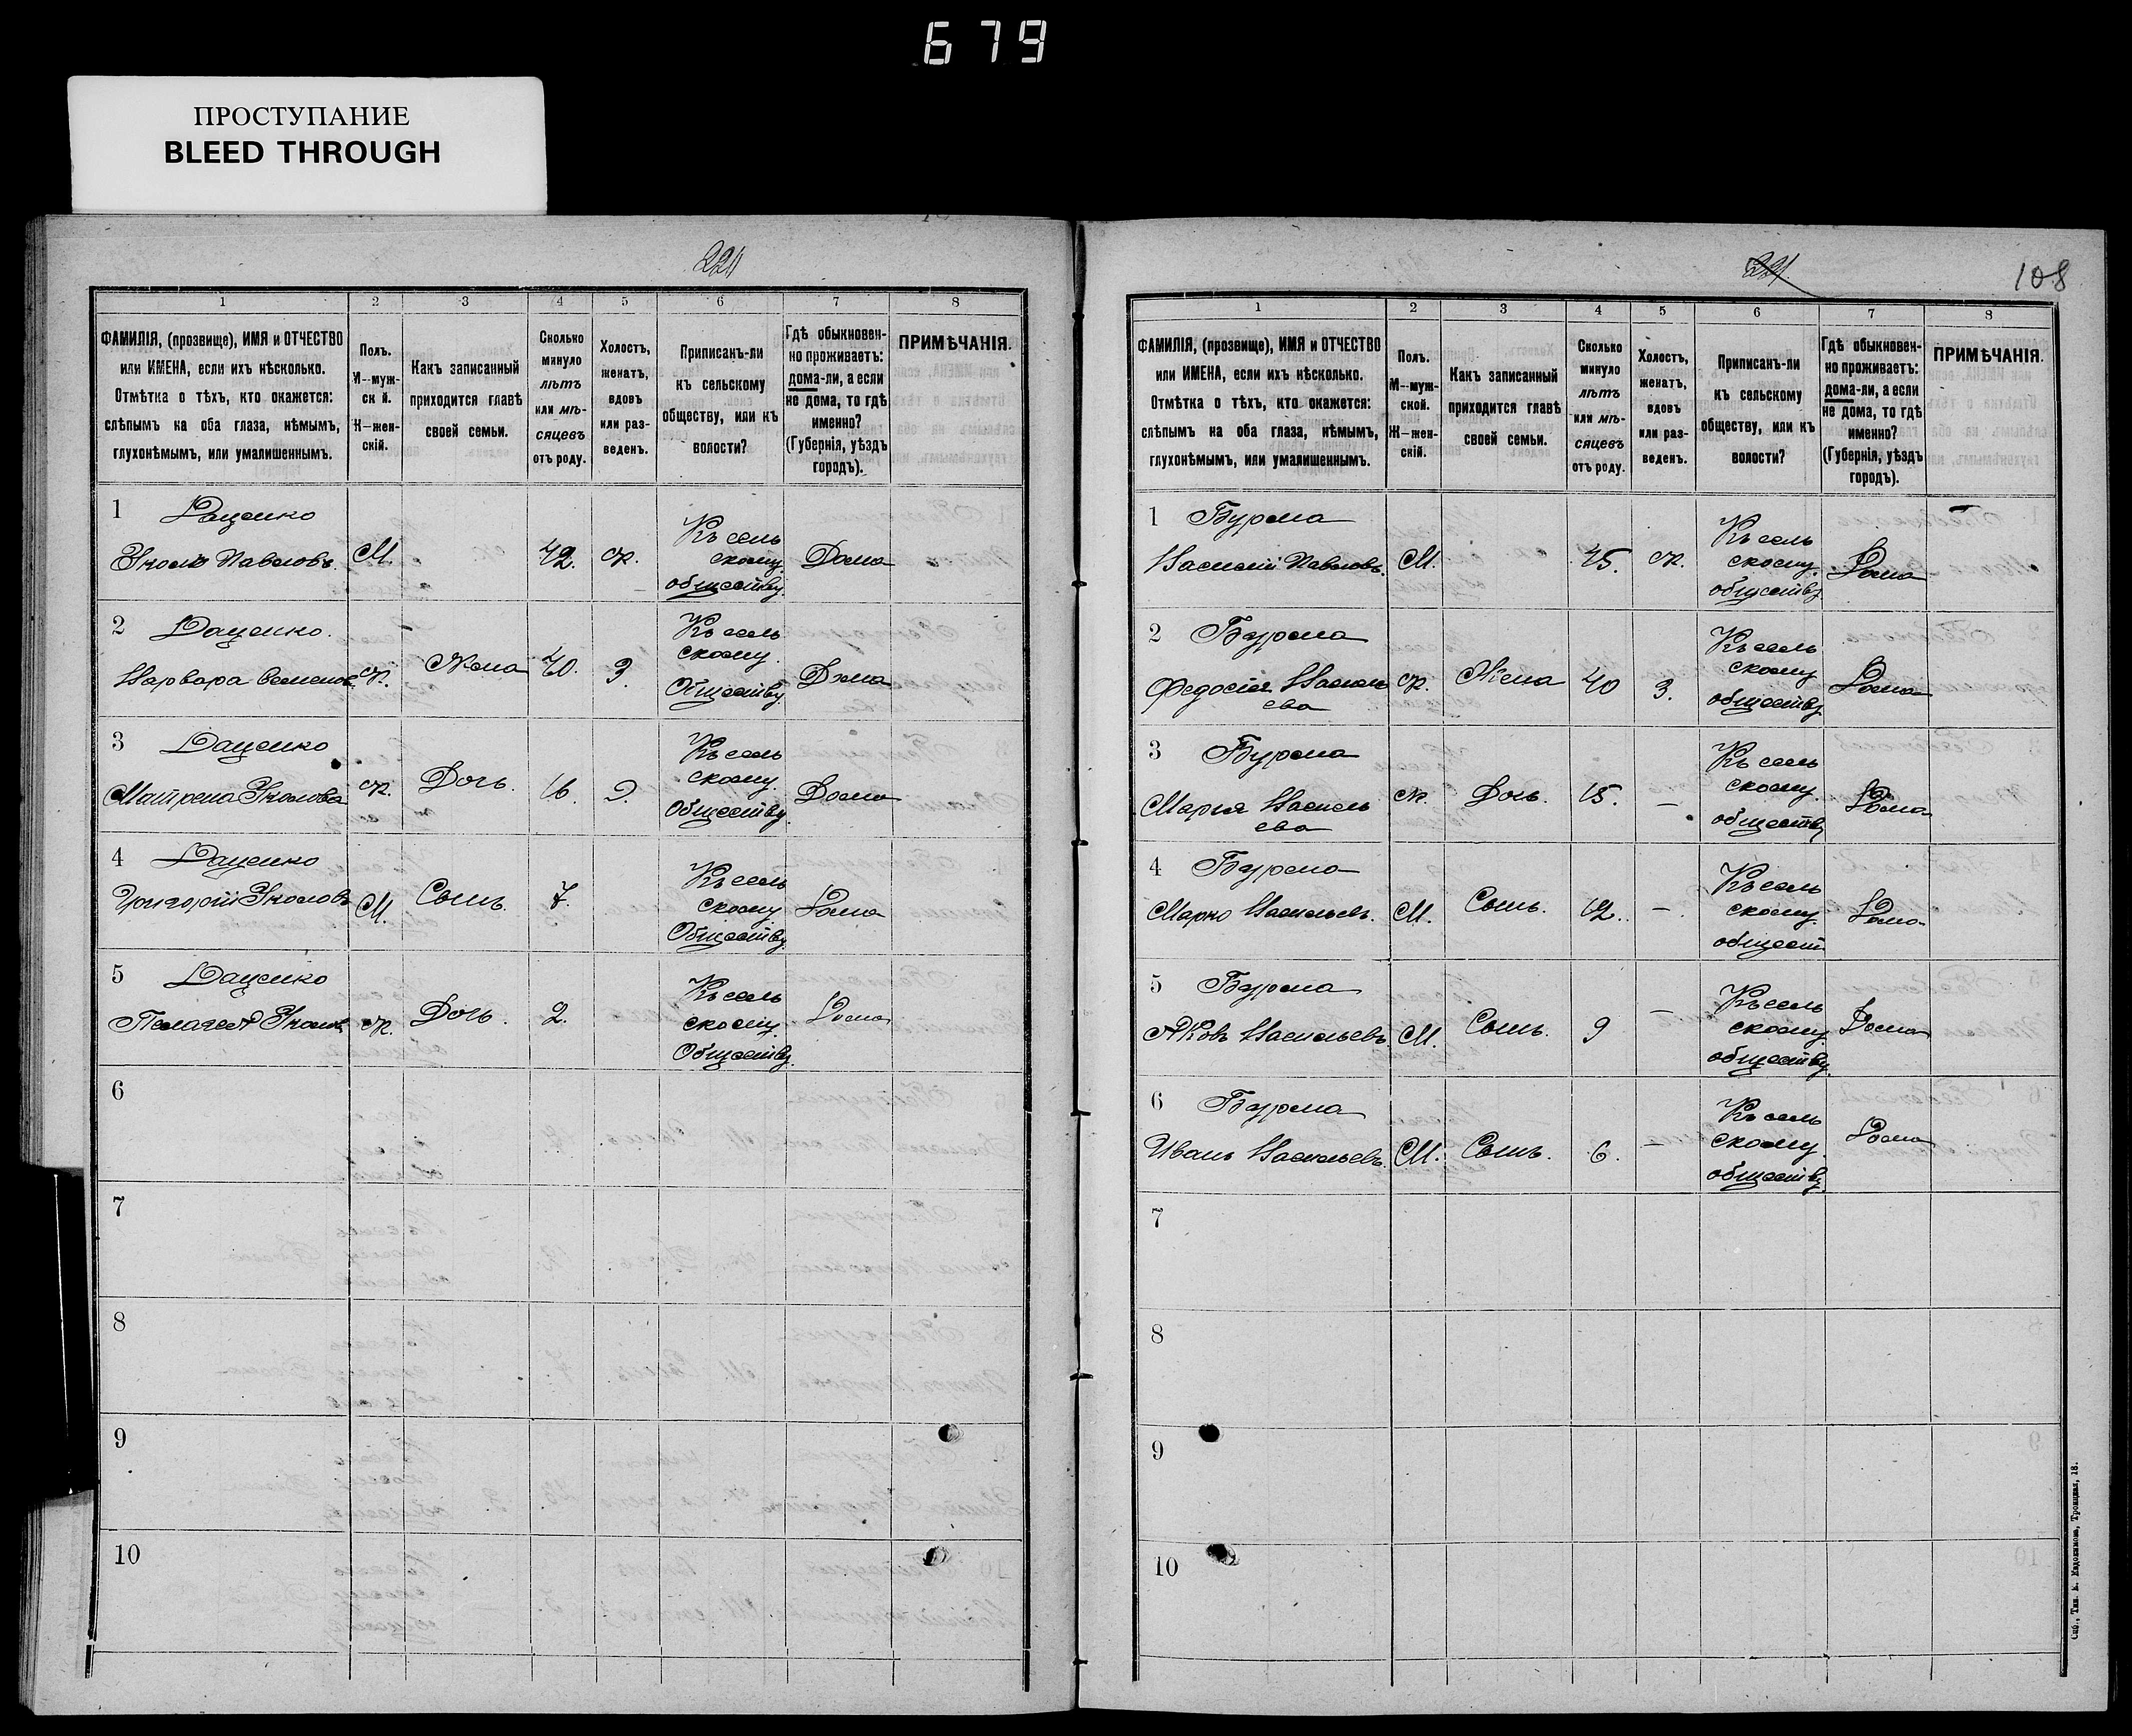 679
ПРОСТУПАНИЕ
BLEED THROUGH
221
1 2 3 4 5 6 7 8
ФАМИЛІЯ, (прозвище), ИМЯ и ОТЧЕСТВО
или ИМЕНА, если ихъ нѣсколько.
Отмѣтка о тѣхъ, кто окажется:
слѣпымъ на оба глаза, нѣмымъ,
глухонѣмымъ, или умалишеннымъ.
Полъ.
М—муж-
ской.
Ж—жен-
скій.
Какъ записанный
приходится главѣ
своей семьи.
Сколько
минуло
лѣтъ
или мѣ-
сяцевъ
отъ роду.
Холостъ,
женатъ,
вдовъ
или раз-
веденъ.
Приписанъ-ли
къ сельскому
обществу, или къ
волости?
Гдѣ обыкновен-
но проживаетъ:
дома-ли, а если
не дома, то гдѣ
именно?
(Губернія, уѣздъ
городъ).
ПРИМѢЧАНІЯ.
1 Даценко
Павловъ. М. 42. ж. Къ сель
скому
обществу. Дома
2 Даценко.
Варвара ж. Жена 40. З. Къ сель
скому.
Обществу. Дома
3 Даценко
Матрена ж. Дочь. 16. Къ сель
скому.
Обществу. Дома
4 Даценко
Григорій М. Сынъ. 7. Къ сель
скому
Обществу. Дома
5 Даценко
Пелагея ж. Дочь. 2. Къ сель
скому.
Обществу. Дома
6
7
8
9
10
221
108
1 2 3 4 5 6 7 8
ФАМИЛІЯ, (прозвище), ИМЯ и ОТЧЕСТВО
или ИМЕНА, если ихъ нѣсколько.
Отмѣтка о тѣхъ, кто окажется:
слѣпымъ на оба глаза, нѣмымъ,
глухонѣмымъ, или умалишеннымъ.
Полъ.
М—муж-
ской.
Ж—жен-
скій.
Какъ записанный
приходится главѣ
своей семьи.
Сколько
минуло
лѣтъ
или мѣ-
сяцевъ
отъ роду.
Холостъ,
женатъ,
вдовъ
или раз-
веденъ.
Приписанъ-ли
къ сельскому
обществу, или къ
волости?
Гдѣ обыкновен-
но проживаетъ:
дома-ли, а если
не дома, то гдѣ
именно?
(Губернія, уѣздъ
городъ).
ПРИМѢЧАНІЯ.
1 Бурма
Василій Павловъ. М. 45. ж. Къ сель
скому
обществу Дома
2 Бурма
Федосія Василь
ева ж. Жена 40 З. Къ сель
скому
обществу Дома
3 Бурма
Марья Василь
ева ж. Дочь. 15. — Къ сель
скому.
обществу Дома
4 Бурма
Марко Васильевъ. М. Сынъ. 12. — Къ сель
скому.
общест. Дома
5 Бурма
Яковъ Васильевъ. М. Сынъ. 9 — Къ сель
скому
обществу. Дома
6 Бурма
Иванъ Васильевъ. М. Сынъ. 6. — Къ сель
скому
обществу. Дома
7
8
9
10
Спб., Тип. Е. Евдокимова, Троицкая, 18.